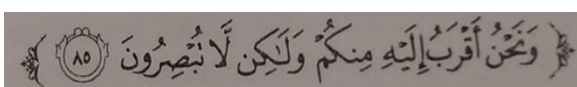 ﴿ وَنَحْنُ أَقْرَبُ إِلَيْهِ مِنكُمْ وَلَٰكِن لَّا تُبْصِرُونَ ٨٥ ﴾